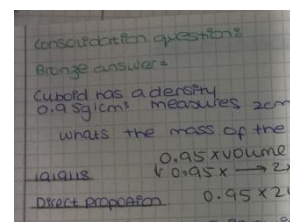 consolidation question:
Bronze answer:
Cuboid has a density
0.95g/cm³ measures 2cm
whats the mass of the
0.95 x volume
0.95 x → 2
Direct proportion 0.95 x 2